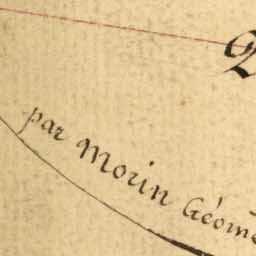 par Morin Géom